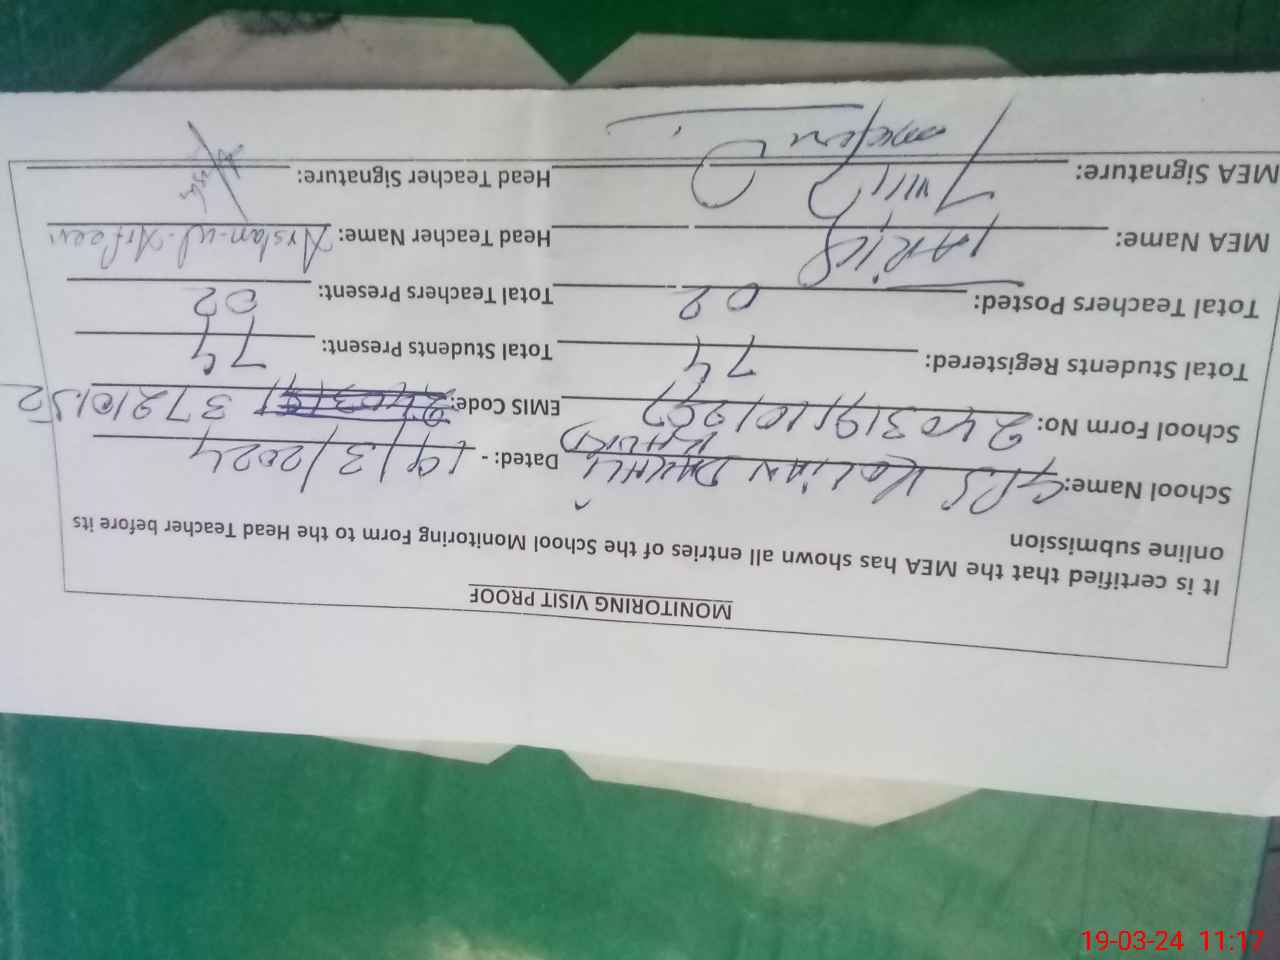 MONITORING VISIT PROOF
It is certified that the MEA has shown all entries of the School Monitoring Form to the Head Teacher before its
online submission
School Name: GPS KALIAN DAKHLI KHURD Dated: - 19/3/2024
School Form No: EMIS Code: 37210152
Total Students Registered: 74 Total Students Present: 74
Total Teachers Posted: 02 Total Teachers Present: 02
MEA Name: Head Teacher Name: Arslan-ul-Arfeen
MEA Signature: Head Teacher Signature:
19-03-24 11:17